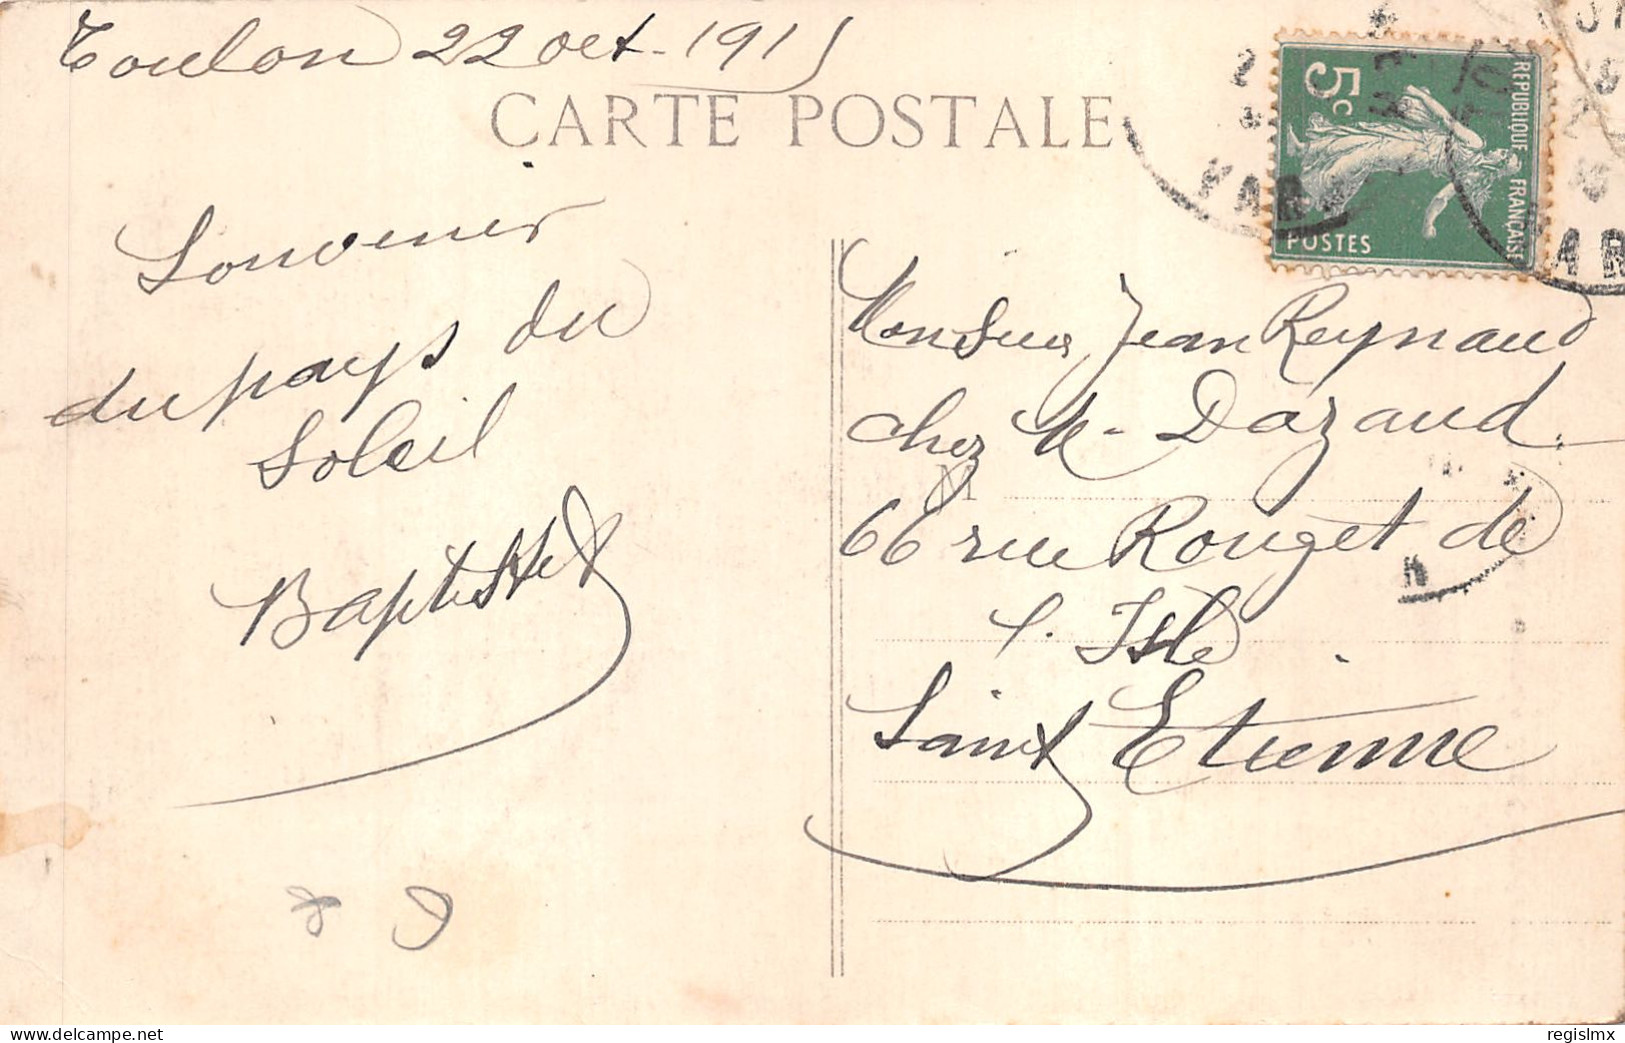 Toulon 22 oct. 1911
CARTE POSTALE
Souvenir
du pays du
Soleil
Baptiste
5c
REPUBLIQUE FRANÇAISE
POSTES
VAR
VAR
Monsieur Jean Reynaud
chez M. Dazaud
M
66 rue Rouget de
l. Isle
Saint Etienne
regislmx